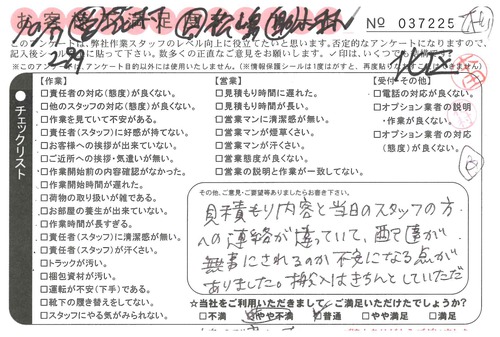 No 037225
このアンケートは、弊社作業スタッフのレベル向上に役立てたいと思います。否定的なアンケートになりますので、
記入後シールに貼って下さい。数多くの正直なご意見をお願いします。
※このアンケートは、アンケート目的以外には使用いたしません。(※情報保護シールは1度はがすと、再度貼りなおすことはできません)
チェックリスト
【作業】
□責任者の対応(態度)が良くない。
□他のスタッフの対応(態度)が良くない。
□作業を見ていて不安がある。
□責任者(スタッフ)に好感が持てない。
□お客様への挨拶が出来ていない。
□ご近所への挨拶・気遣いが無い。
□作業開始前の内容確認がなかった。
□作業開始時間が遅れた。
□荷物の取り扱いが雑である。
□お部屋の養生が出来ていない。
□作業時間が長すぎる。
□責任者(スタッフ)に清潔感が無い。
□責任者(スタッフ)が汗くさい。
□トラックが汚い。
□梱包資材が汚い。
□運転が不安(下手)である。
□靴下の履き替えをしてない。
□スタッフにやる気がみられない。
【営業】
□見積もり時間に遅れた。
□見積もり時間が長い。
□営業マンに清潔感が無い。
□営業マンが煙草くさい。
□営業マンが汗くさい。
□営業態度が良くない。
□営業の説明と作業が一致してない。
【受付・その他】
□電話の対応が良くない。
□オプション業者の説明
・作業が良くない。
□オプション業者の対応
(態度)が良くない。
その他、ご意見・ご要望等ありましたらお書き下さい。
見積もり内容と当日のスタッフの方
への連絡が違っていて、配置が
無事にされるのか不安になる点が
ありました。搬入はきちんとしていただ
☆当社をご利用いただきまして、ご満足いただけたでしょうか?
□不満 □やや不満 □普通 □やや満足 □満足